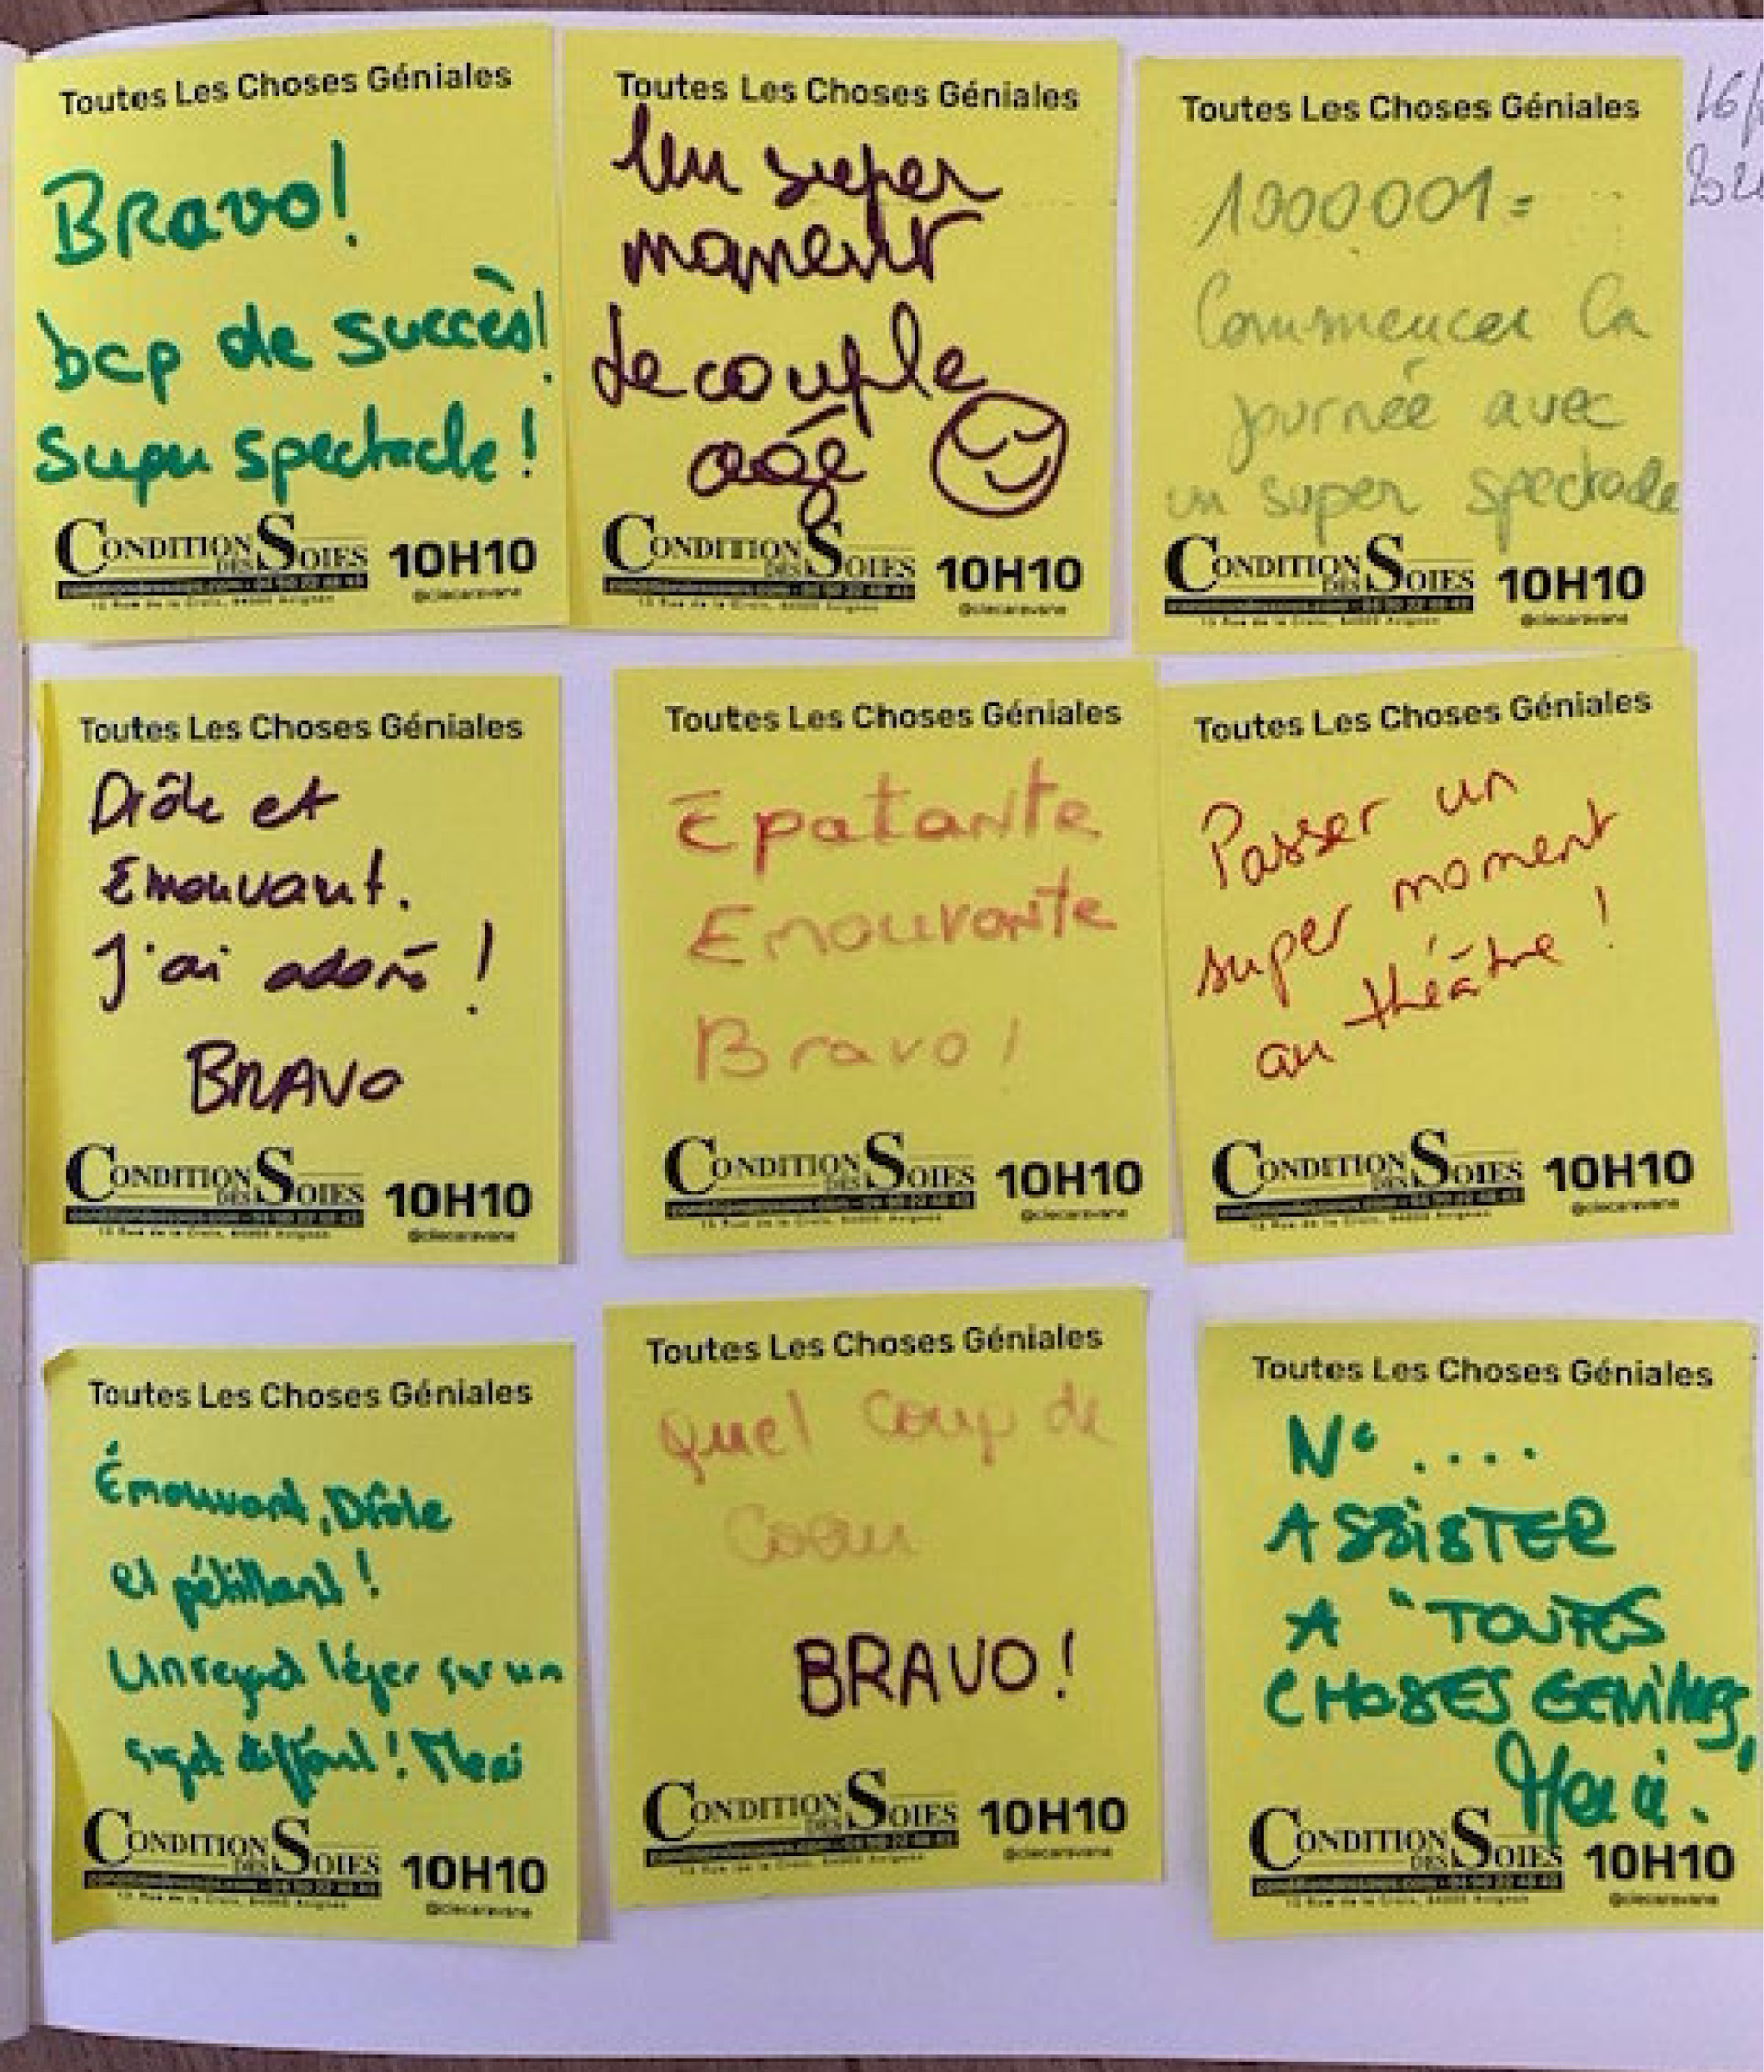 Toutes Les Choses Géniales
Bravo!
bcp de succès!
super spectacle!
CONDITION DES SOIES 10H10
@ciecaravane
Toutes Les Choses Géniales
Un super
moment
de couple
âgé
CONDITION DES SOIES 10H10
@ciecaravane
Toutes Les Choses Géniales
1000001=
Commencer la
journée avec
un super spectacle
CONDITION DES SOIES 10H10
@ciecaravane
16/
Toutes Les Choses Géniales
Drôle et
Emouvant.
J'ai adoré !
BRAVO
CONDITION DES SOIES 10H10
@ciecaravane
Toutes Les Choses Géniales
Epatante
Emouvante
Bravo !
CONDITION DES SOIES 10H10
@ciecaravane
Toutes Les Choses Géniales
Passer un
super moment
au théâtre !
CONDITION DES SOIES 10H10
@ciecaravane
Toutes Les Choses Géniales
Émouvant, Drôle
et pétillant !
Un regard léger sur un
sujet difficile ! Merci
CONDITION DES SOIES 10H10
@ciecaravane
Toutes Les Choses Géniales
Quel coup de
Coeur
BRAVO !
CONDITION DES SOIES 10H10
@ciecaravane
Toutes Les Choses Géniales
N° ....
ASSISTER
A "TOUTES
CHOSES GENIALES"
Merci.
CONDITION DES SOIES 10H10
@ciecaravane